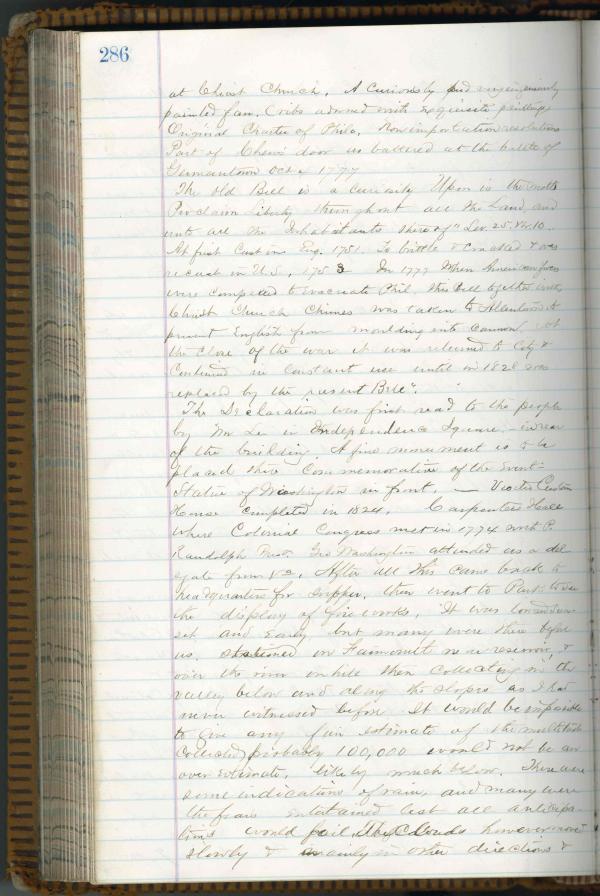 286
at Christ Church. A curiously and very ingeniously
painted fan. Cribs adorned with exquisite paintings
Original Charter of Phila. Non importation resolutions
Part of Chew's door as battered at the battle of
Germantown Oct 4 1777
The old Bell is a curiosity Upon is the motto
Proclaim Liberty throughout all the Land, and
unto all the Inhabitants thereof" Lev. 25. Vs. 10.
At first Cast in Eng. 1751. To brittle & cracked & was
recast in U.S, 1753 In 1777 When American forces
were compelled to evacuate Phil this Bell together with
Christ Church Chimes was taken to Allentown to
prevent English from moulding into Cannon, at
the close of the war it was returned to City &
Continued in constant use until in 1828 was
replaced by the present Bell".
The Declaration was first read to the people
by Mr in Independence Square, in rear
of the building. A fine monument is to be
placed there Commemorative of the Event-
Statue of Washington in front, — Visited Custom
House completed in 1824. Carpenters Hall
where Colonial Congress met in 1774 with P.
Randolph Prest. Geo Washington attended as a del
egate from Va. After all this came back to
headquarters for supper, then went to Park to see
the display of fireworks, It was
set and early but many were there before
us. stationed on Fairmount new reservoir, &
over the river on hill then collecting in the
valley below and along the slopes as I had
never witnessed before It would be impossible
to give any fair estimate of the multitude
Collected, probably 100,000 would not be an
over estimate, likely much below. There were
some indications of rain, and many were
the fears entertained lest all anticipa-
tions would fail. The Clouds however moved
slowly & mainly in other directions &